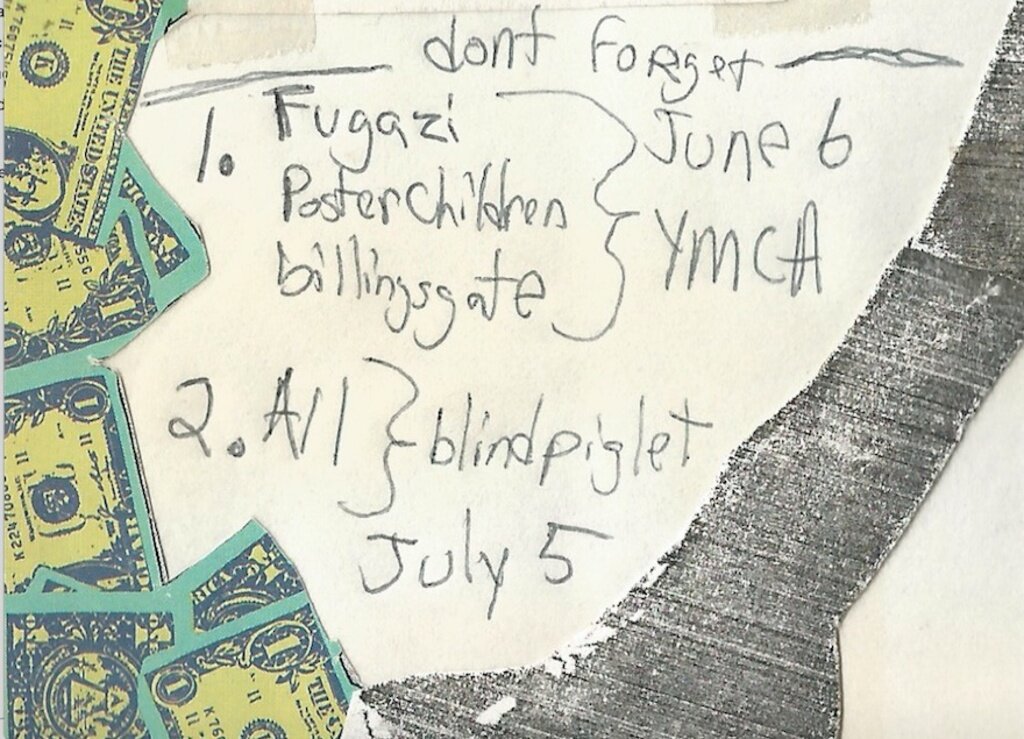 dont forget
1. Fugazi
Poster Children
billingsgate
June 6
YMCA
2. All
blindpiglet
July 5
THE UNITED STATES